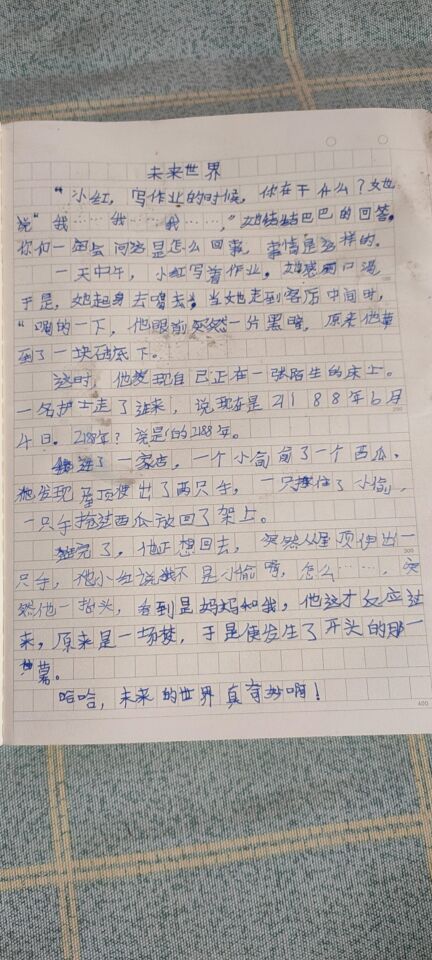 未来世界
“小红，写作业的时候，你在干什么？她
说“我……我……我……，”她结结巴巴的回答。
你们一定会问这是怎么回事，事情是这样的。
一天中午，小红写着作业，她感到口渴，
于是，她起身去喝水，当她走到客厅中间时，
“嘣的一下，他眼前突然一片黑暗，原来他掉
到了一块砖底下。
这时，他发现自己正在一张陌生的床上。
一名护士走了进来，说现在是2188年6月
4日。2188年？说是的2188年。
进了一家店，一个小偷偷了一个西瓜，
他发现屋顶使出了两只手，一只抓住了小偷，
一只手抢过西瓜放回了架上。
完了，他正想回去，突然从屋顶伸出一
只手，他小红说我不是小偷啊，怎么……，突
然他一抬头，看到是妈妈和我，他这才反应过
来，原来是一场梦，于是便发生了开头的那一
幕。
哈哈，未来的世界真奇妙啊！